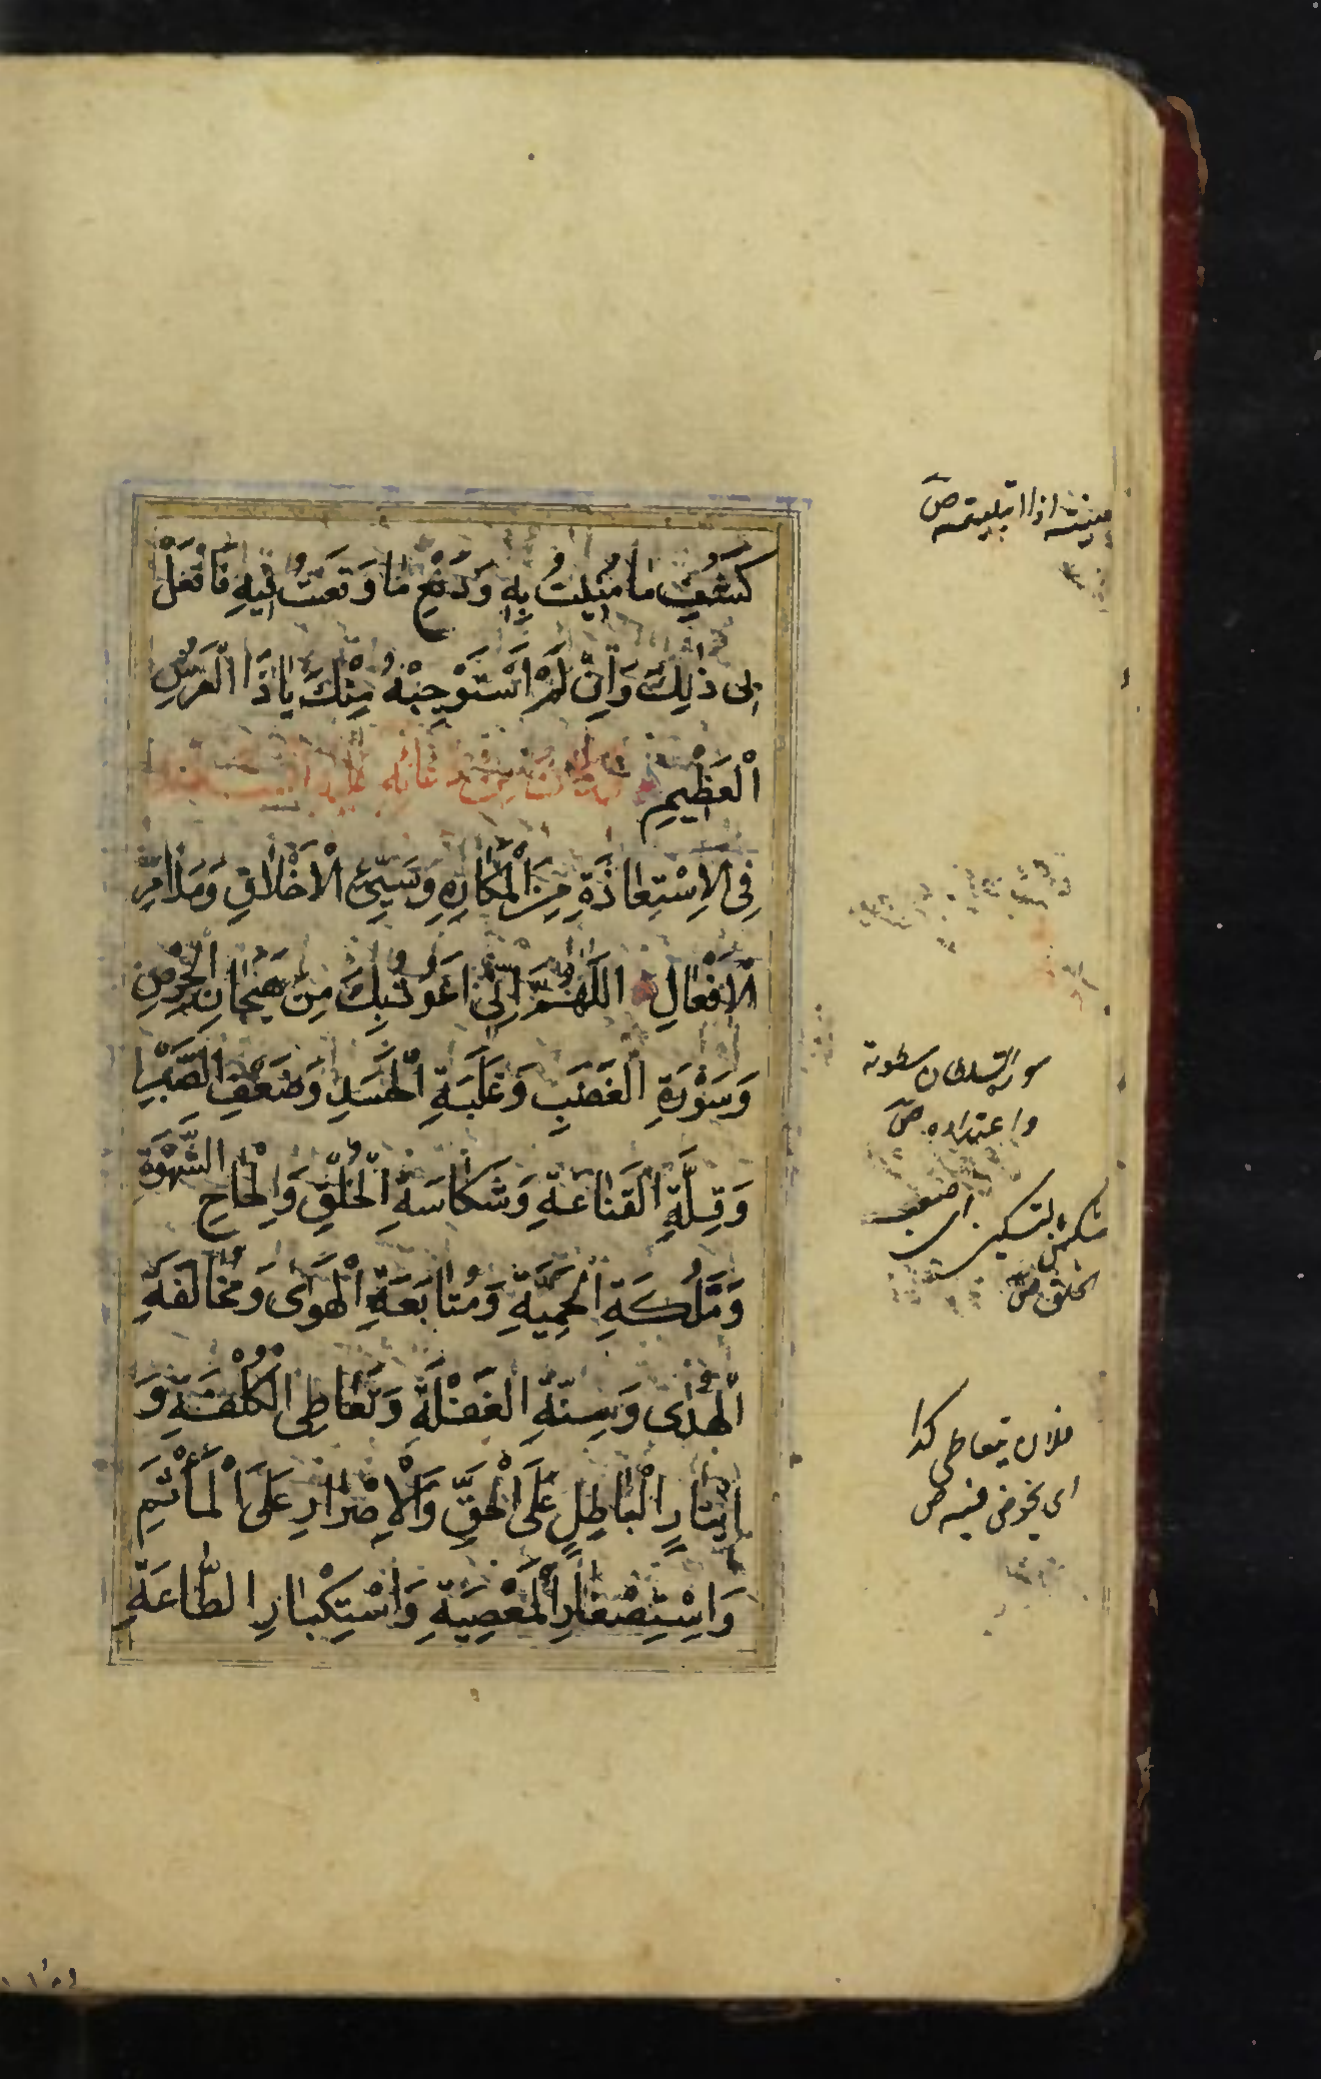 كَشْفِ مٰا مُنِيتُ بِهِ وَدَفْعِ مٰا وَقَعْتُ فِيهِ فَافْعَلْ
بِى ذٰلِكَ وَاِنْ لَمْ اَسْتَوْجِبْهُ مِنْكَ يٰا ذَا الْعَرْشِ
الْعَظِيمِ وَكَانَ مِنْ دُعَائِهِ عَلَيْهِ السَّلَامُ
فِى الْاِسْتِعٰاذَةِ مِنَ الْمَكٰارِهِ وَسَيِّئِ الْاَخْلٰاقِ وَمَذٰامِّ
الْاَفْعٰالِ اَللّٰهُمَّ اِنِّى اَعُوذُ بِكَ مِنْ هَيَجٰانِ الْحِرْصِ
وَسَوْرَةِ الْغَضَبِ وَغَلَبَةِ الْحَسَدِ وَضَعْفِ الصَّبْرِ
وَقِلَّةِ الْقَنٰاعَةِ وَشَكٰاسَةِ الْخُلُقِ وَاِلْحٰاحِ الشَّهْوَةِ
وَمَلَكَةِ الْحَمِيَّةِ وَمُتٰابَعَةِ الْهَوٰى وَمُخٰالَفَةِ
الْهُدٰى وَسِنَةِ الْغَفْلَةِ وَتَعٰاطِى الْكُلْفَةِ وَ
اِيثٰارِ الْبٰاطِلِ عَلَى الْحَقِّ وَالْاِصْرٰارِ عَلَى الْمَأْثَمِ
وَاسْتِصْغٰارِ الْمَعْصِيَةِ وَاسْتِكْبٰارِ الطّٰاعَةِ
منيته اذا ابتليته ص
سورة السلطان سطوته
واعتداده ص
شكس بالتسكين اى صعب
الخلق ص
فلان يتعاطى كذا
اى يخوض فيه ص